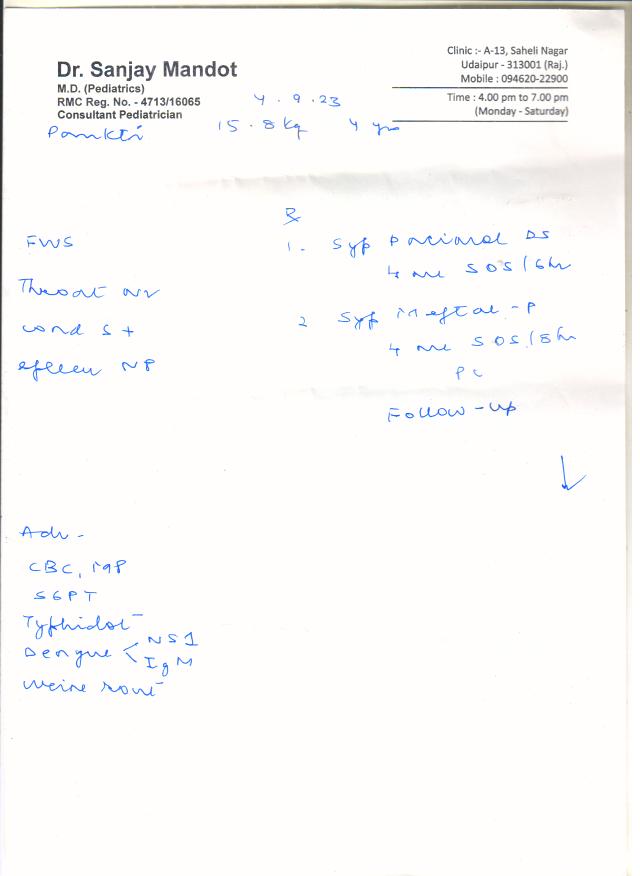 Dr. Sanjay Mandot
M.D. (Pediatrics)
RMC Reg. No. - 4713/16065
Consultant Pediatrician
Clinic :- A-13, Saheli Nagar
Udaipur - 313001 (Raj.)
Mobile : 094620-22900
Time : 4.00 pm to 7.00 pm
(Monday - Saturday)
4.9.23
Pankti 15.8 kg 4 yrs
℞
FWS
Throat
S +
NP
1. Syp DS
4 ml SOS/6hr
2 Syp Meftal-P
4 ml SOS/8hr
PC
Follow-up
Adv -
CBC, MP
SGPT
Typhidot
Dengue < NS1
IgM